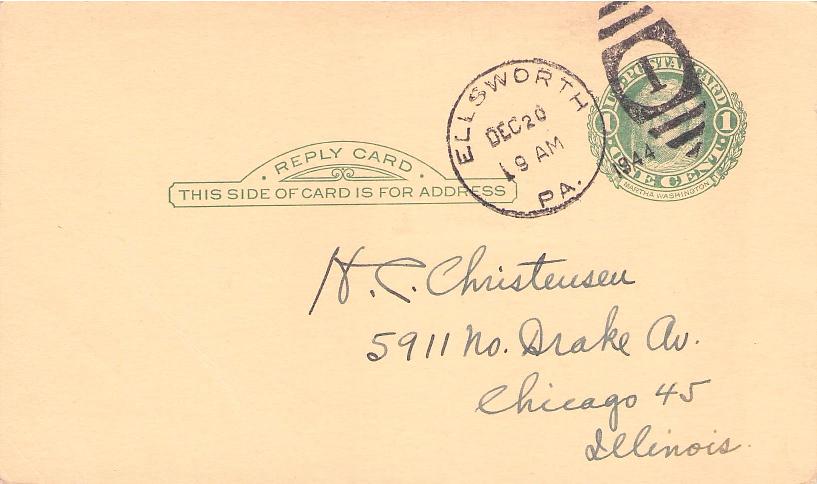 ELLSWORTH
DEC 20
9 AM
1944
PA.
1
U.S. POSTAL CARD
1 1
ONE CENT
MARTHA WASHINGTON
· REPLY CARD ·
THIS SIDE OF CARD IS FOR ADDRESS
H. C. Christensen
5911 No. Drake Av.
Chicago 45
Illinois.